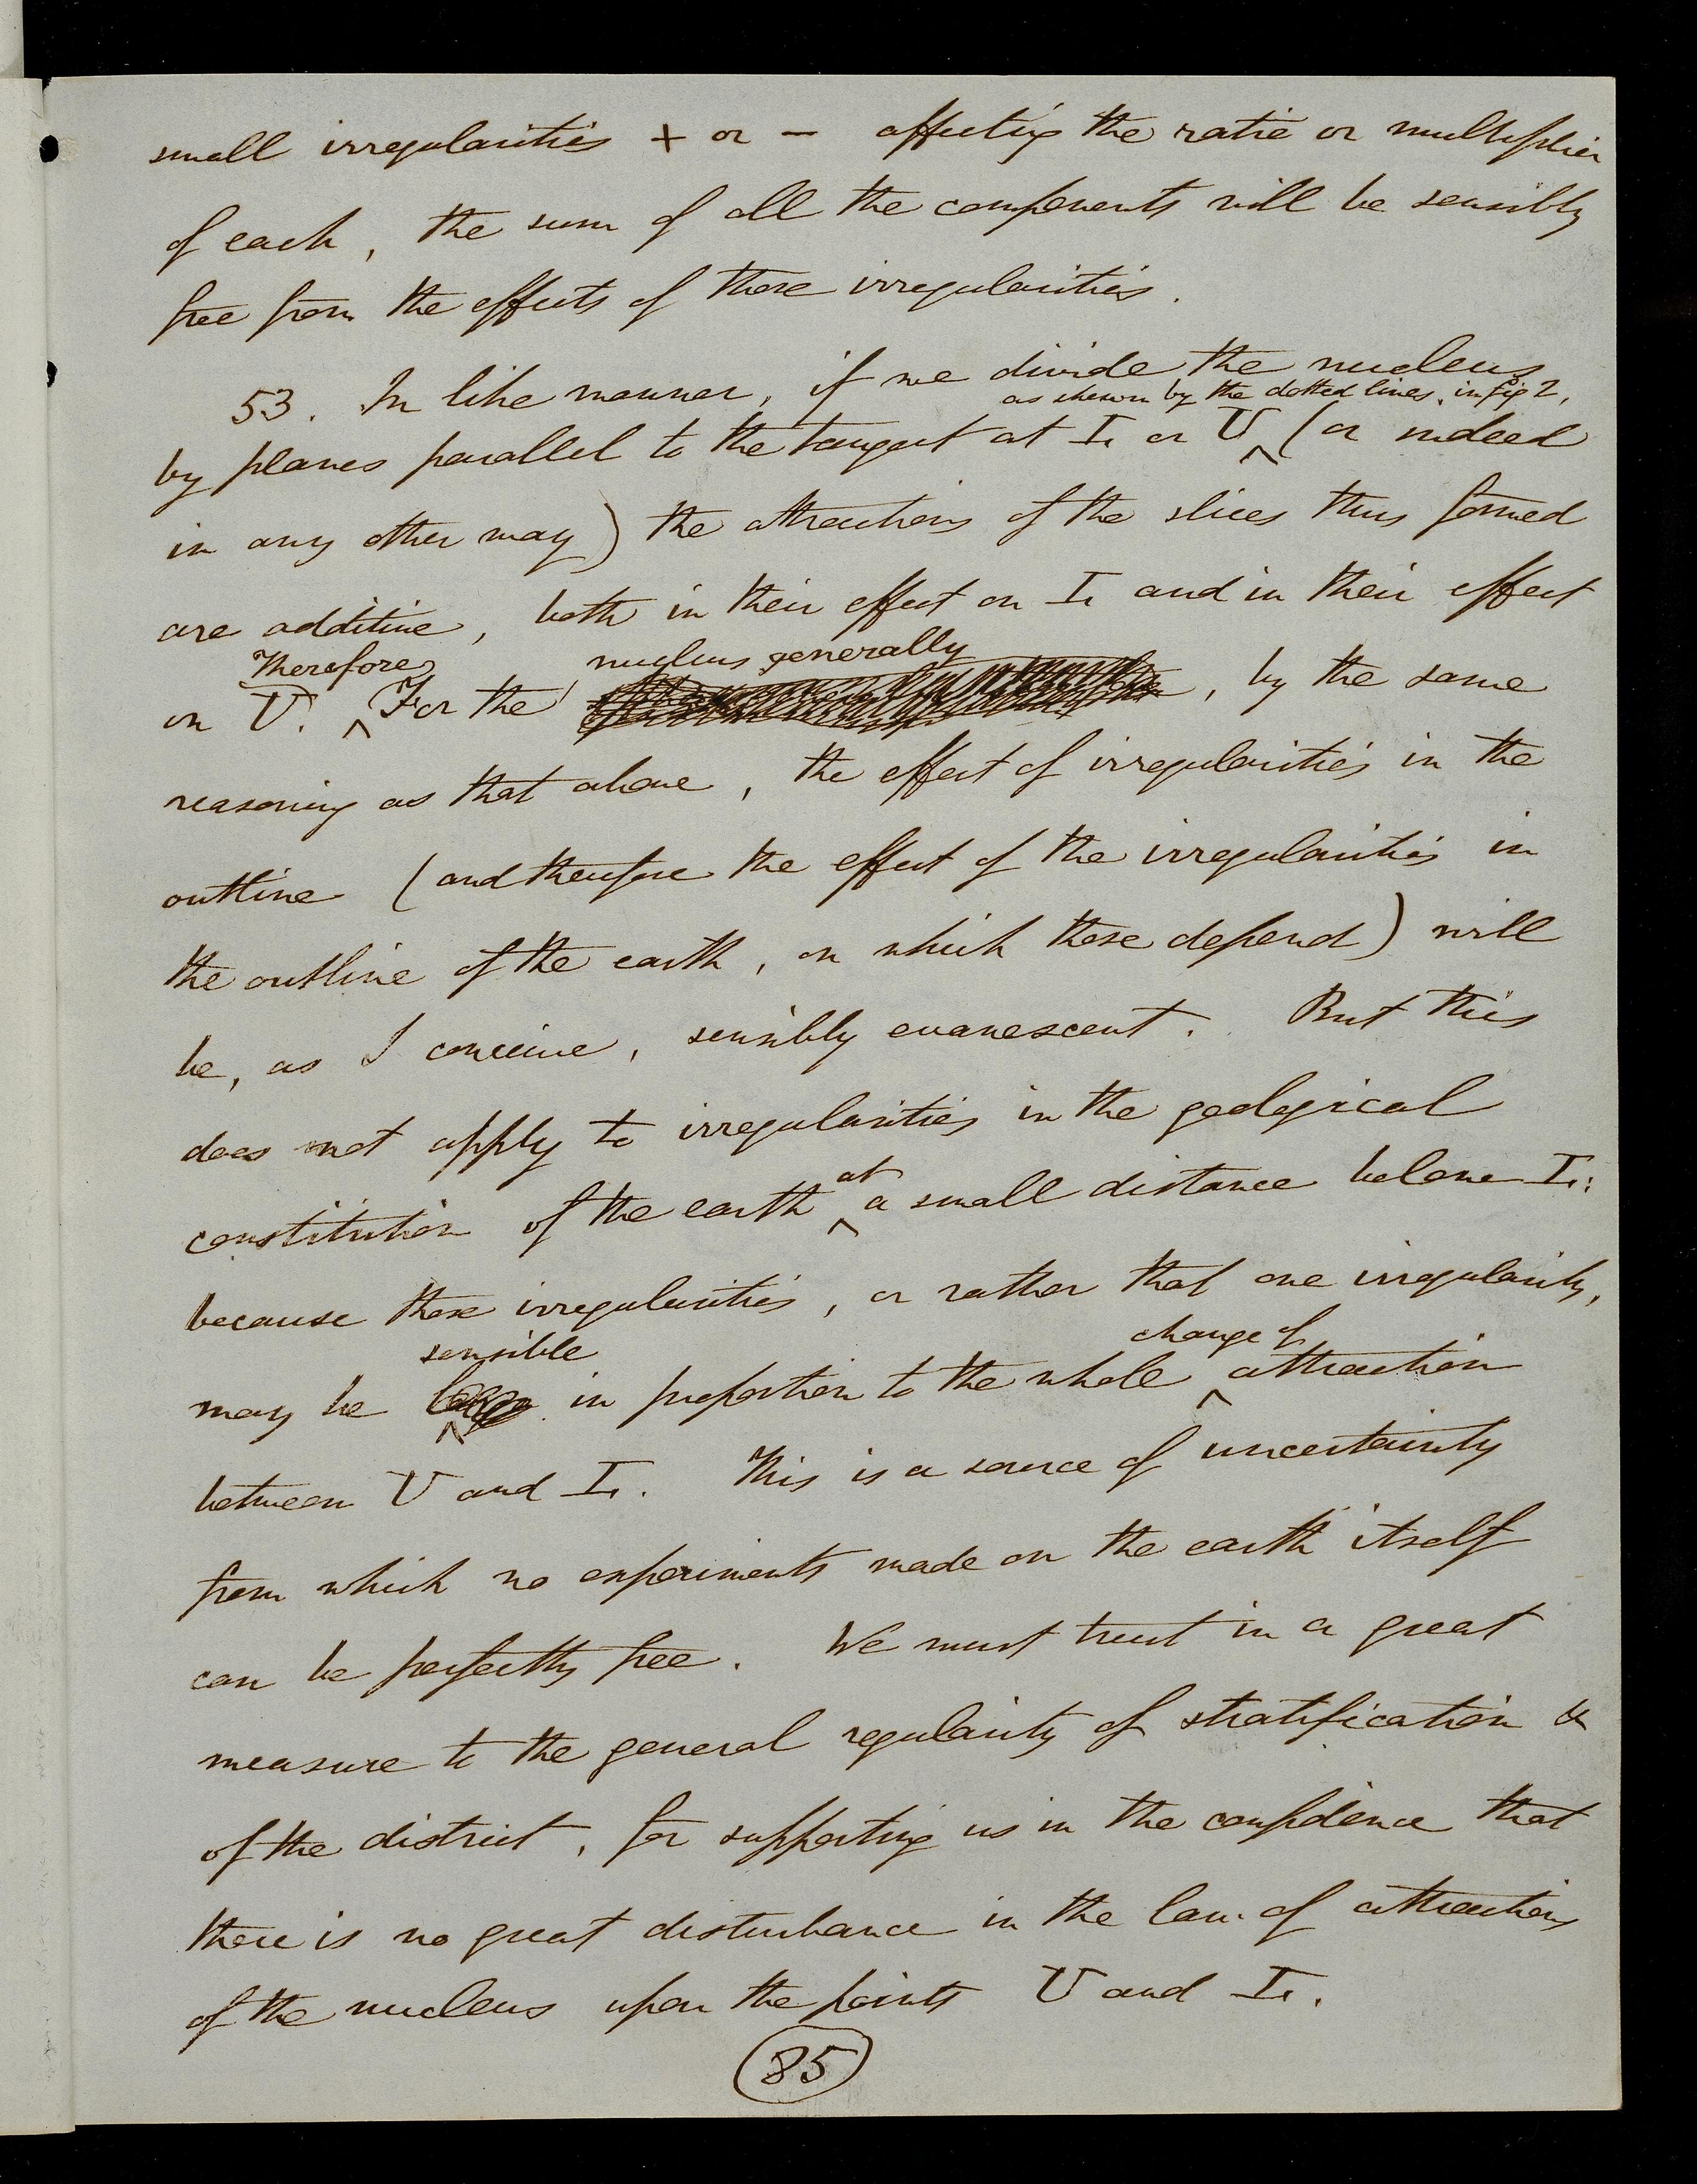 small irregularities + or − affecting the ratio or multiplier
of each, the sum of all the components will be sensibly
free from the effects of those irregularities.
53. In like manner, if we divide the nucleus
as shewn by the dotted lines in fig 2,
by planes parallel to the tangent at L or U ^ (or indeed
in any other way) the attractions of the slices thus formed
are additive, both in their effect on L and in their effect
Therefore nucleus generally
on U. ^ For the , by the same
reasoning as that above, the effect of irregularities in the
outline (and therefore the effect of the irregularities in
the outline of the earth, on which those depend) will
be, as I conceive, sensibly evanescent. But this
does not apply to irregularities in the geological
at
constitution of the earth ^ a small distance below L:
because those irregularities, or rather that one irregularity,
sensible change of
may be ^ in proportion to the whole ^ attraction
between U and L. This is a source of uncertainty
from which no experiments made on the earth itself
can be perfectly free. We must trust in a great
measure to the general regularity of stratification &
of the district, for supporting us in the confidence that
there is no great disturbance in the law of attractions
of the nucleus upon the points U and L.
85